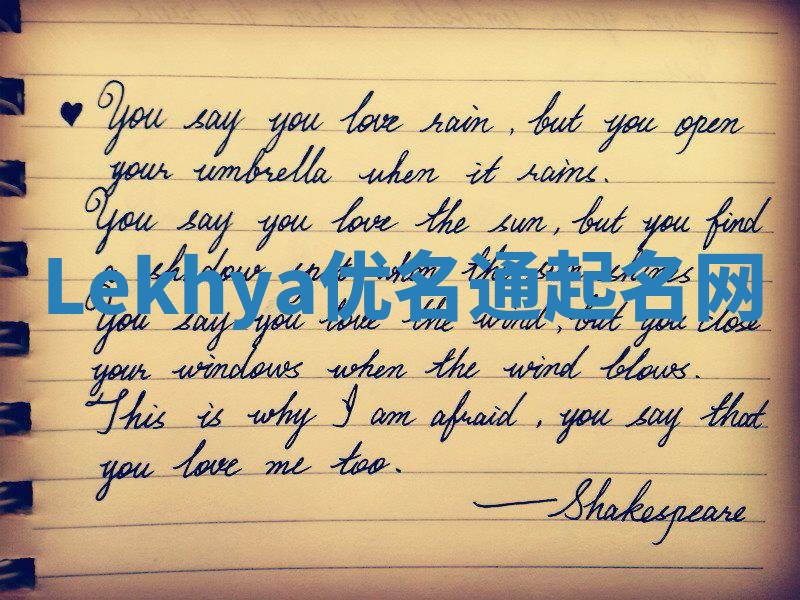 ♥ You say you love rain, but you open
your umbrella when it rains.
You say you love the sun, but you find
a shadow spot when the sun shines
Lekhya优名通起名网
You say you love the wind, but you close
your windows when the wind blows.
This is why I am afraid, you say that
you love me too.
— Shakespeare